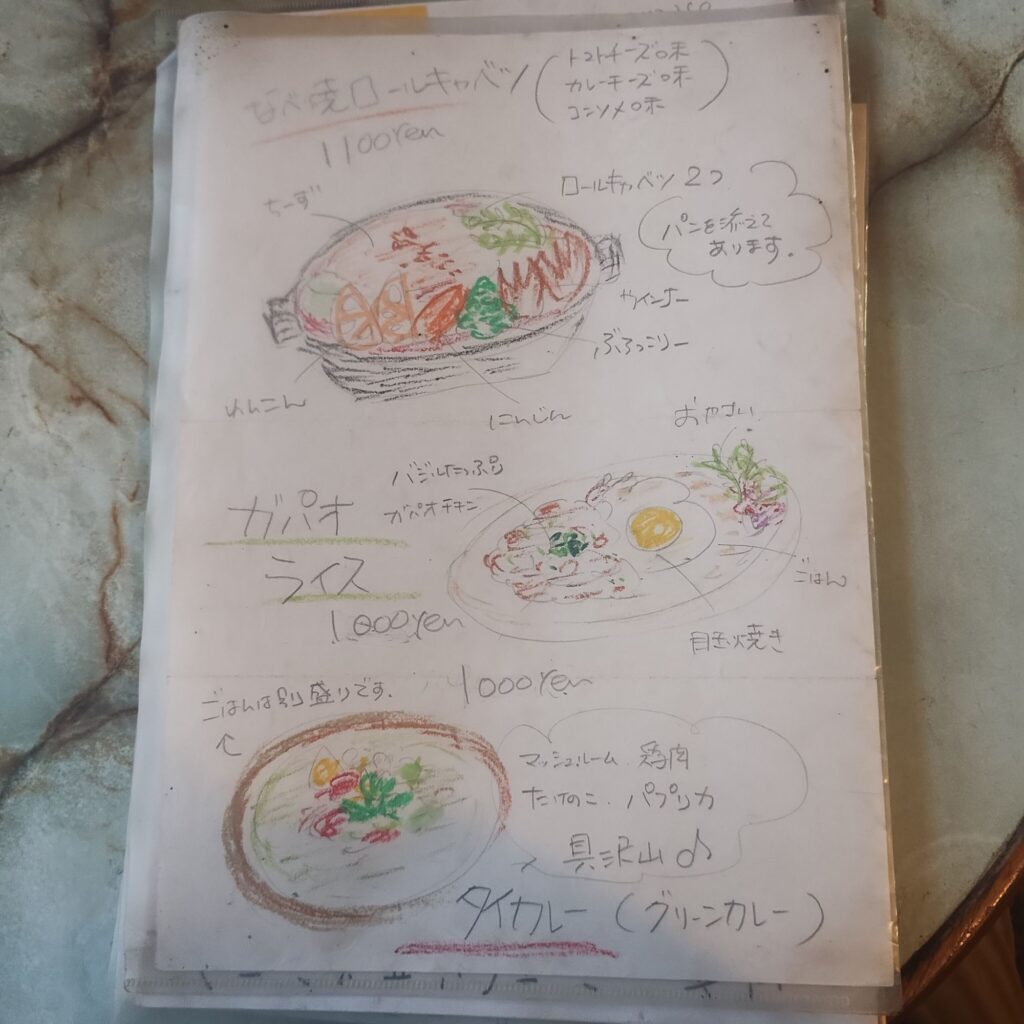 なべ焼ロールキャベツ
トマトチーズ味
カレーチーズ味
コンソメ味
1100yen
ちーず
ロールキャベツ 2つ
パンを添えて
あります。
ウインナー
ぶろっこりー
れんこん
にんじん
おやさい
バジルたっぷり
ガパオチキン
ガパオ
ライス
1000yen
ごはん
目玉焼き
1000yen
ごはんは別盛りです.
マッシュルーム 鶏肉
たけのこ. パプリカ
具沢山♪
タイカレー (グリーンカレー)